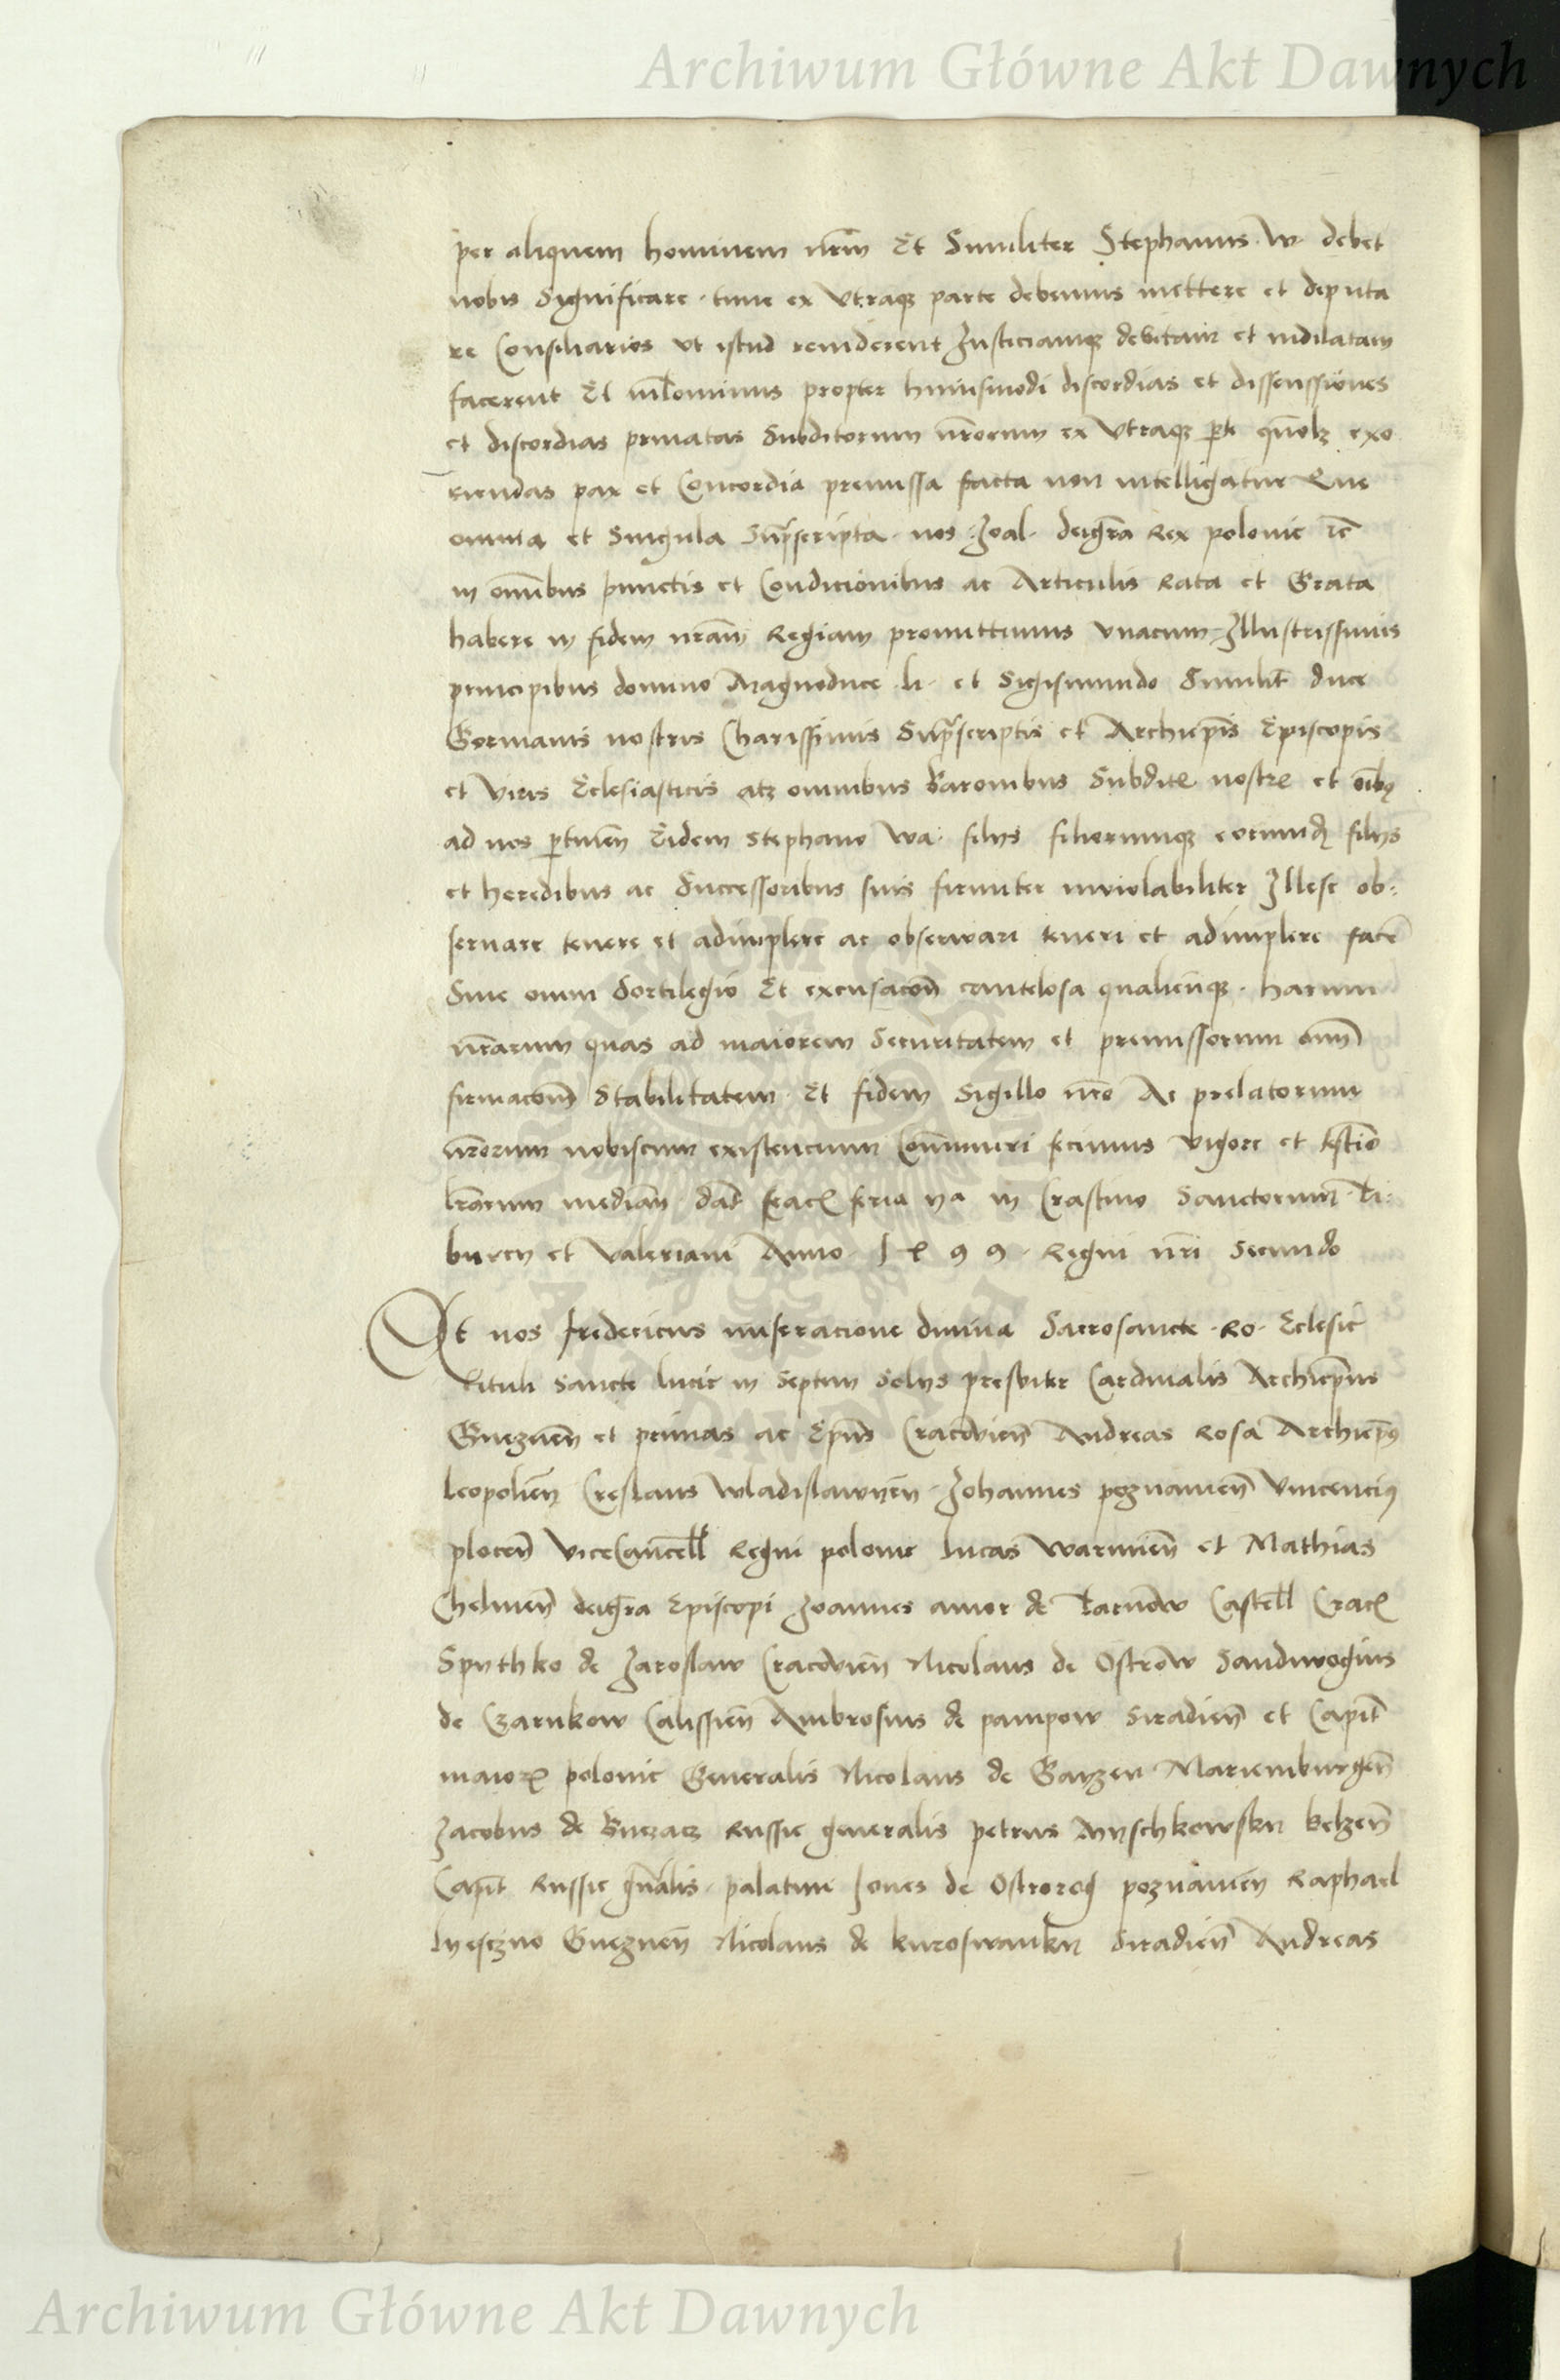 Archiwum Główne Akt Dawnych
per aliquem hominem nr̄m Et Similiter Stephanus · W · debet
nobis Significare · tunc ex Vtraqꝫ parte debemus mittere et deputa
re Consiliarios vt istud reviderent Justiciamqꝫ debitam et indilatam
facerent Et nich̄lominus propter huiusmodi discordias et dissenssiones
et discordias privatas Subditorum nr̄orum ex Vtraqꝫ pͬte quōlꝫ exo
riendas pax et Concordia premissa fracta non intelligatur Que
omnia et Singula Sup̄scripta · nos · Joal · deigr̄a Rex polonie ꝛc̄
in om̄ibus punctis et Condicionibus ac Articulis Rata et Grata
habere in fidem nr̄am Regiam promittimus vnacum Illustrissimis
principibus domino Magnoduce · li · et Sigismundo Similit̄ duce
Germanis nostris Charissimis Sup̄scriptis et Archiep̄is Episcopis
et Viris Eclesiasticis atꝫ omnibus Baronibus Subdite nostre et oībꝰ
ad nos p̄tinen̄ Eidem Stephano Wa · filijs filiorumqꝫ eorundꝫ filijs
et heredibus ac Successoribus suis firmiter inviolabiliter Illese ob-
servare tenere et adimplere ac observari teneri et adimplere facē
Sine omni Sortilegio Et excusacōn̄ cautelosa qualicūqꝫ · harum
nr̄arum quas ad maiorem Securitatem et premissorum om̄
firmacōem Stabilitatem · Et fidem Sigillo nr̄o Ac prelatorum
nr̄orum nobiscum existencium Com̄muniri fecimus vigore et tēstīo
lr̄arum median̄ · dat̄ Cracꝭ feria ijᵃ in Crastino Sanctorum · Ti-
burcij et Valeriani Anno · 1 4 9 9 · Regni nr̄i Secundo
Et nos fredericus miseracione divina Sacrosancte · Ro · Eclesie
Tituli Sancte Lucie in Septem Solijs presbiter Cardinalis Archiep̄us
Gneznen̄ et primas ac Ep̄us Cracovien̄ Andreas Rosa Archiep̄ꝰ
Leopolien̄ Creslaus Wladislavien̄ · Johannes poznanien̄ Vincenciꝰ
plocen̄ ViceCancell̄ Regni polonie Lucas Warmien̄ et Mathias
Chelmen̄ deigr̄a Episcopi Joannes amor de Tarnow Castell̄ Cracꝭ
Spythko de Jaroslaw Cracovien̄ Nicolaus de Ostrow Sandivogius
de Czarnkow Calissien̄ Ambrosius de pampow Siradien̄ et Capit̄
maiorꝭ polonie Generalis Nicolaus de Bayzen Mariemburgen̄
Jacobus de Buczacz Russie generalis petrus Myschkowsky belzen̄
Capit̄ Russie gn̄alis · palatini Joēs de Ostrorog poznanien̄ Raphael
lyesczno Gneznen̄ Nicolaus de kuroswanky Siradien̄ Andreas
Archiwum Główne Akt Dawnych